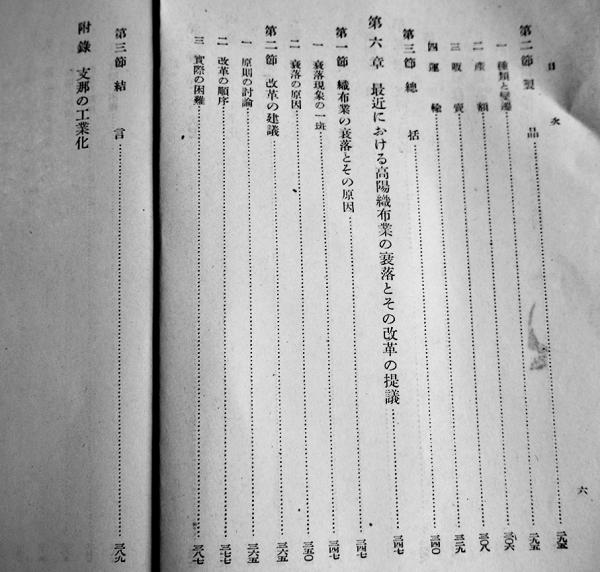 目次
六
第二節 製品 二九五
一 種類と變遷 二九五
二 產額 三〇六
三 販賣 三〇八
四 運輸 三二九
第三節 總括 三四〇
第六章 最近における高陽織布業の衰落とその改革の提議 三四七
第一節 織布業の衰落とその原因 三四七
一 衰落現象の一斑 三四七
二 衰落の原因 三五〇
第二節 改革の建議 三六五
一 原則の討論 三六五
二 改革の順序 三七七
三 實際の困難 三八七
第三節 結言 三八九
附錄 支那の工業化